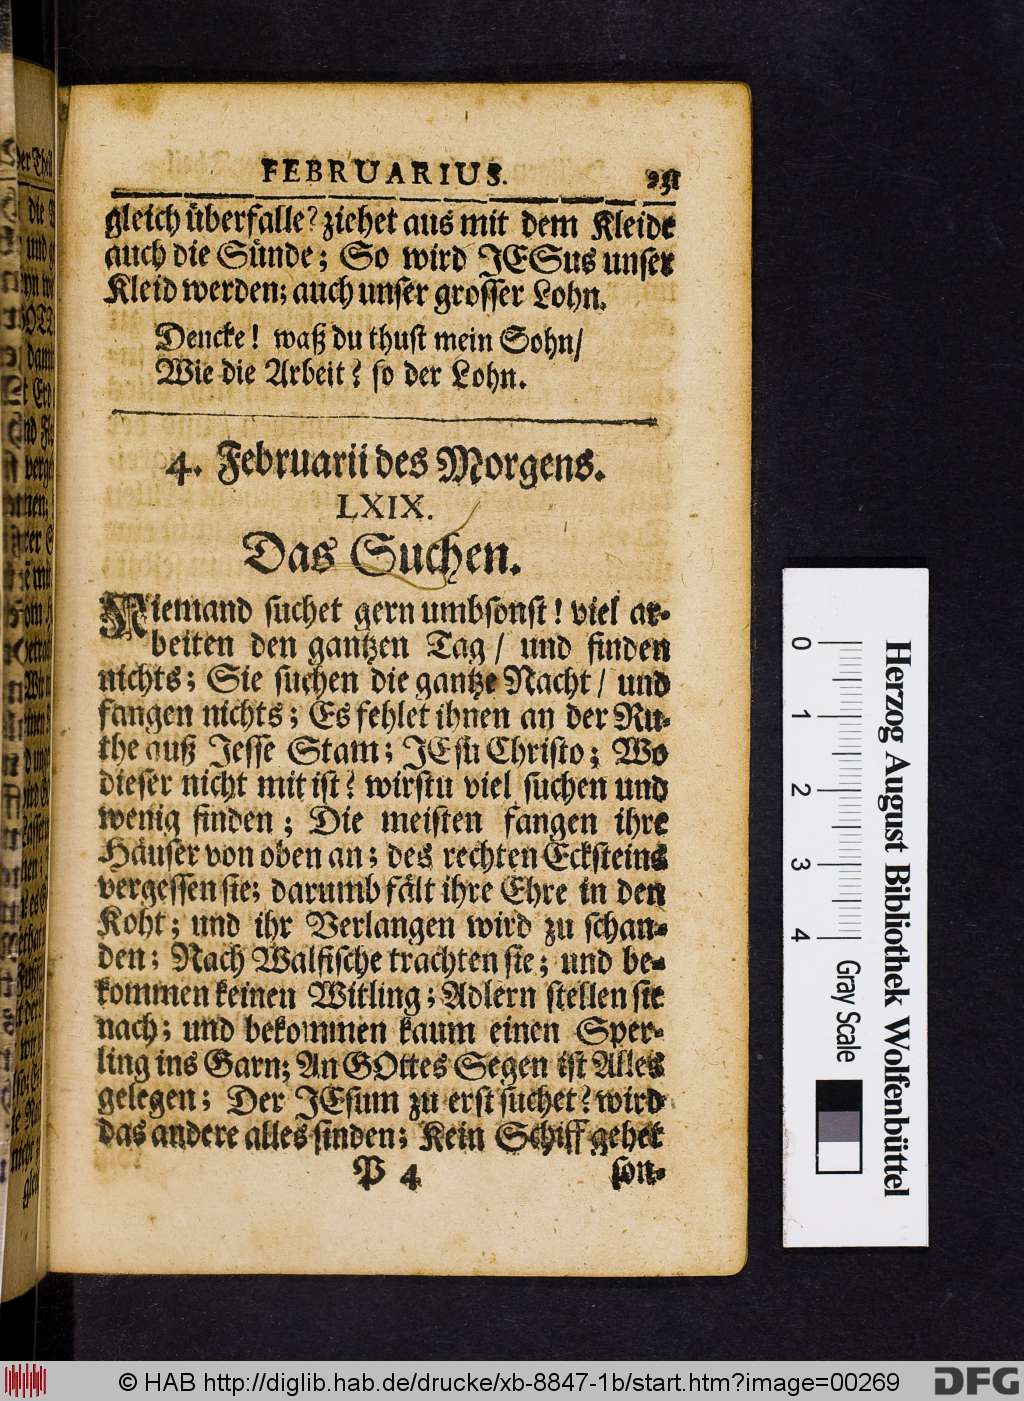 FEBRUARIUS. 231
gleich überfalle? ziehet aus mit dem Kleide
auch die Sünde; So wird JESus unser
Kleid werden; auch unser grosser Lohn.
Dencke! waß du thust mein Sohn/
Wie die Arbeit? so der Lohn.
4. Februarii des Morgens.
LXIX.
Das Suchen.
Niemand suchet gern umbsonst! viel ar-
beiten den gantzen Tag/ und finden
nichts; Sie suchen die gantze Nacht/ und
fangen nichts; Es fehlet ihnen an der Ru-
the auß Jesse Stam; JEsu Christo; Wo
dieser nicht mit ist? wirstu viel suchen und
wenig finden; Die meisten fangen ihre
Häuser von oben an; des rechten Ecksteins
vergessen sie; darumb fält ihre Ehre in den
Koht; und ihr Verlangen wird zu schan-
den; Nach Walfische trachten sie; und be-
kommen keinen Witling; Adlern stellen sie
nach; und bekommen kaum einen Sper-
ling ins Garn; An GOttes Segen ist Alles
gelegen; Der JEsum zu erst suchet? wird
das andere alles finden; Kein Schiff gehet
P 4 son-
0 1 2 3 4 Gray Scale
Herzog August Bibliothek Wolfenbüttel
© HAB http://diglib.hab.de/drucke/xb-8847-1b/start.htm?image=00269 DFG